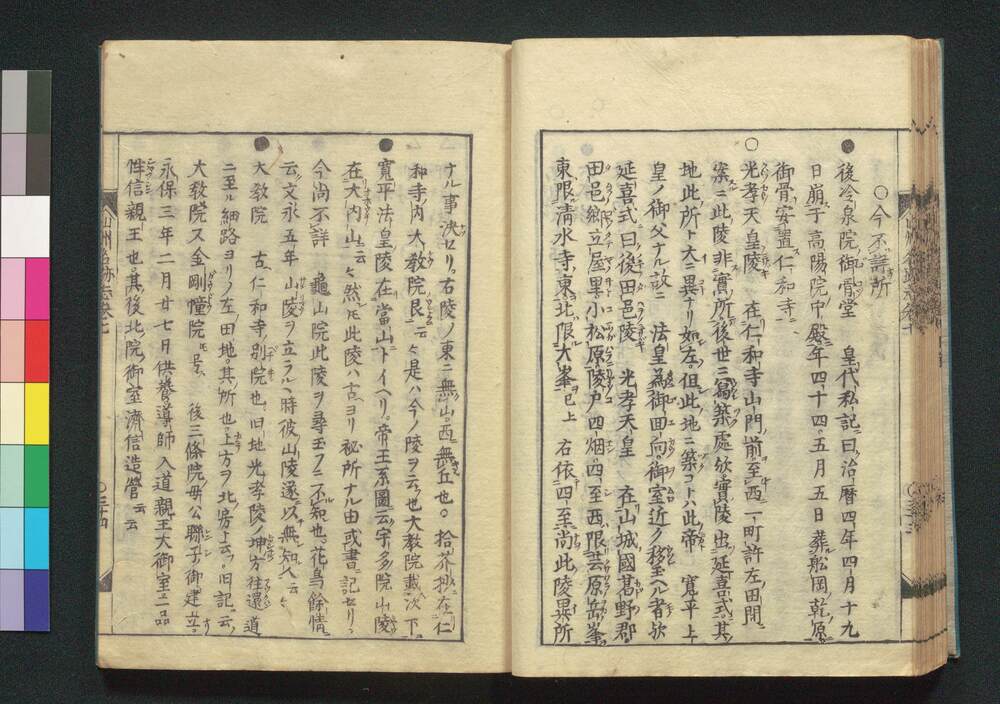 ○今不詳所
後冷泉院御骨堂　皇代私記曰治暦四年四月十九
日崩于高陽院中殿年四十四五月五日葬船岡乾原
御骨安置仁和寺
光孝天皇陵　在仁和寺山門前至西一町許左田間
案ニ此陵非實所後世ニ築處欤實陵也延喜式其
地此所ト大ニ異ナリ如左但此地ニ築コトハ此帝　寛平上
皇ノ御父ナル故ニ　法皇為御回向御室近ク移玉ヘル者欤
延喜式曰後田邑陵　光孝天皇　在山城國葛野郡
田邑郷立屋里小松原陵戸四烟四至西限芸原岳峯
東限清水寺東北限大峯已上　右依四至尚此陵異所
ナル事决セリ右陵ノ東ニ無山西無丘也　拾芥抄在仁
和寺内大教院艮云々是ハ今ノ陵ヲ云也大教院載次下
寛平法皇陵在當山トイヘリ帝王系圖云宇多院山陵
在大内山云々然𪜈此陵ハ古ヨリ秘所ナル由或書記セリ
今尚不詳　龜山院此陵ヲ尋玉フニ不知也花鳥餘情
云文永五年　山陵ヲ立ラル時彼山陵遂以無知人云々
大教院　古仁和寺別院也旧地光孝陵ノ坤方往還道
ニ至ル細路ヨリノ左田地其所也上方ヲ北房ト云フ旧記云
大教院又金剛幢院𪜈号　後三條院毋公聯子御建立
永保三年二月廿七日供養導師入道親王大御室二品
性信親王也其後北院御室濟信造營云云
山州名跡志巻七
○三十四